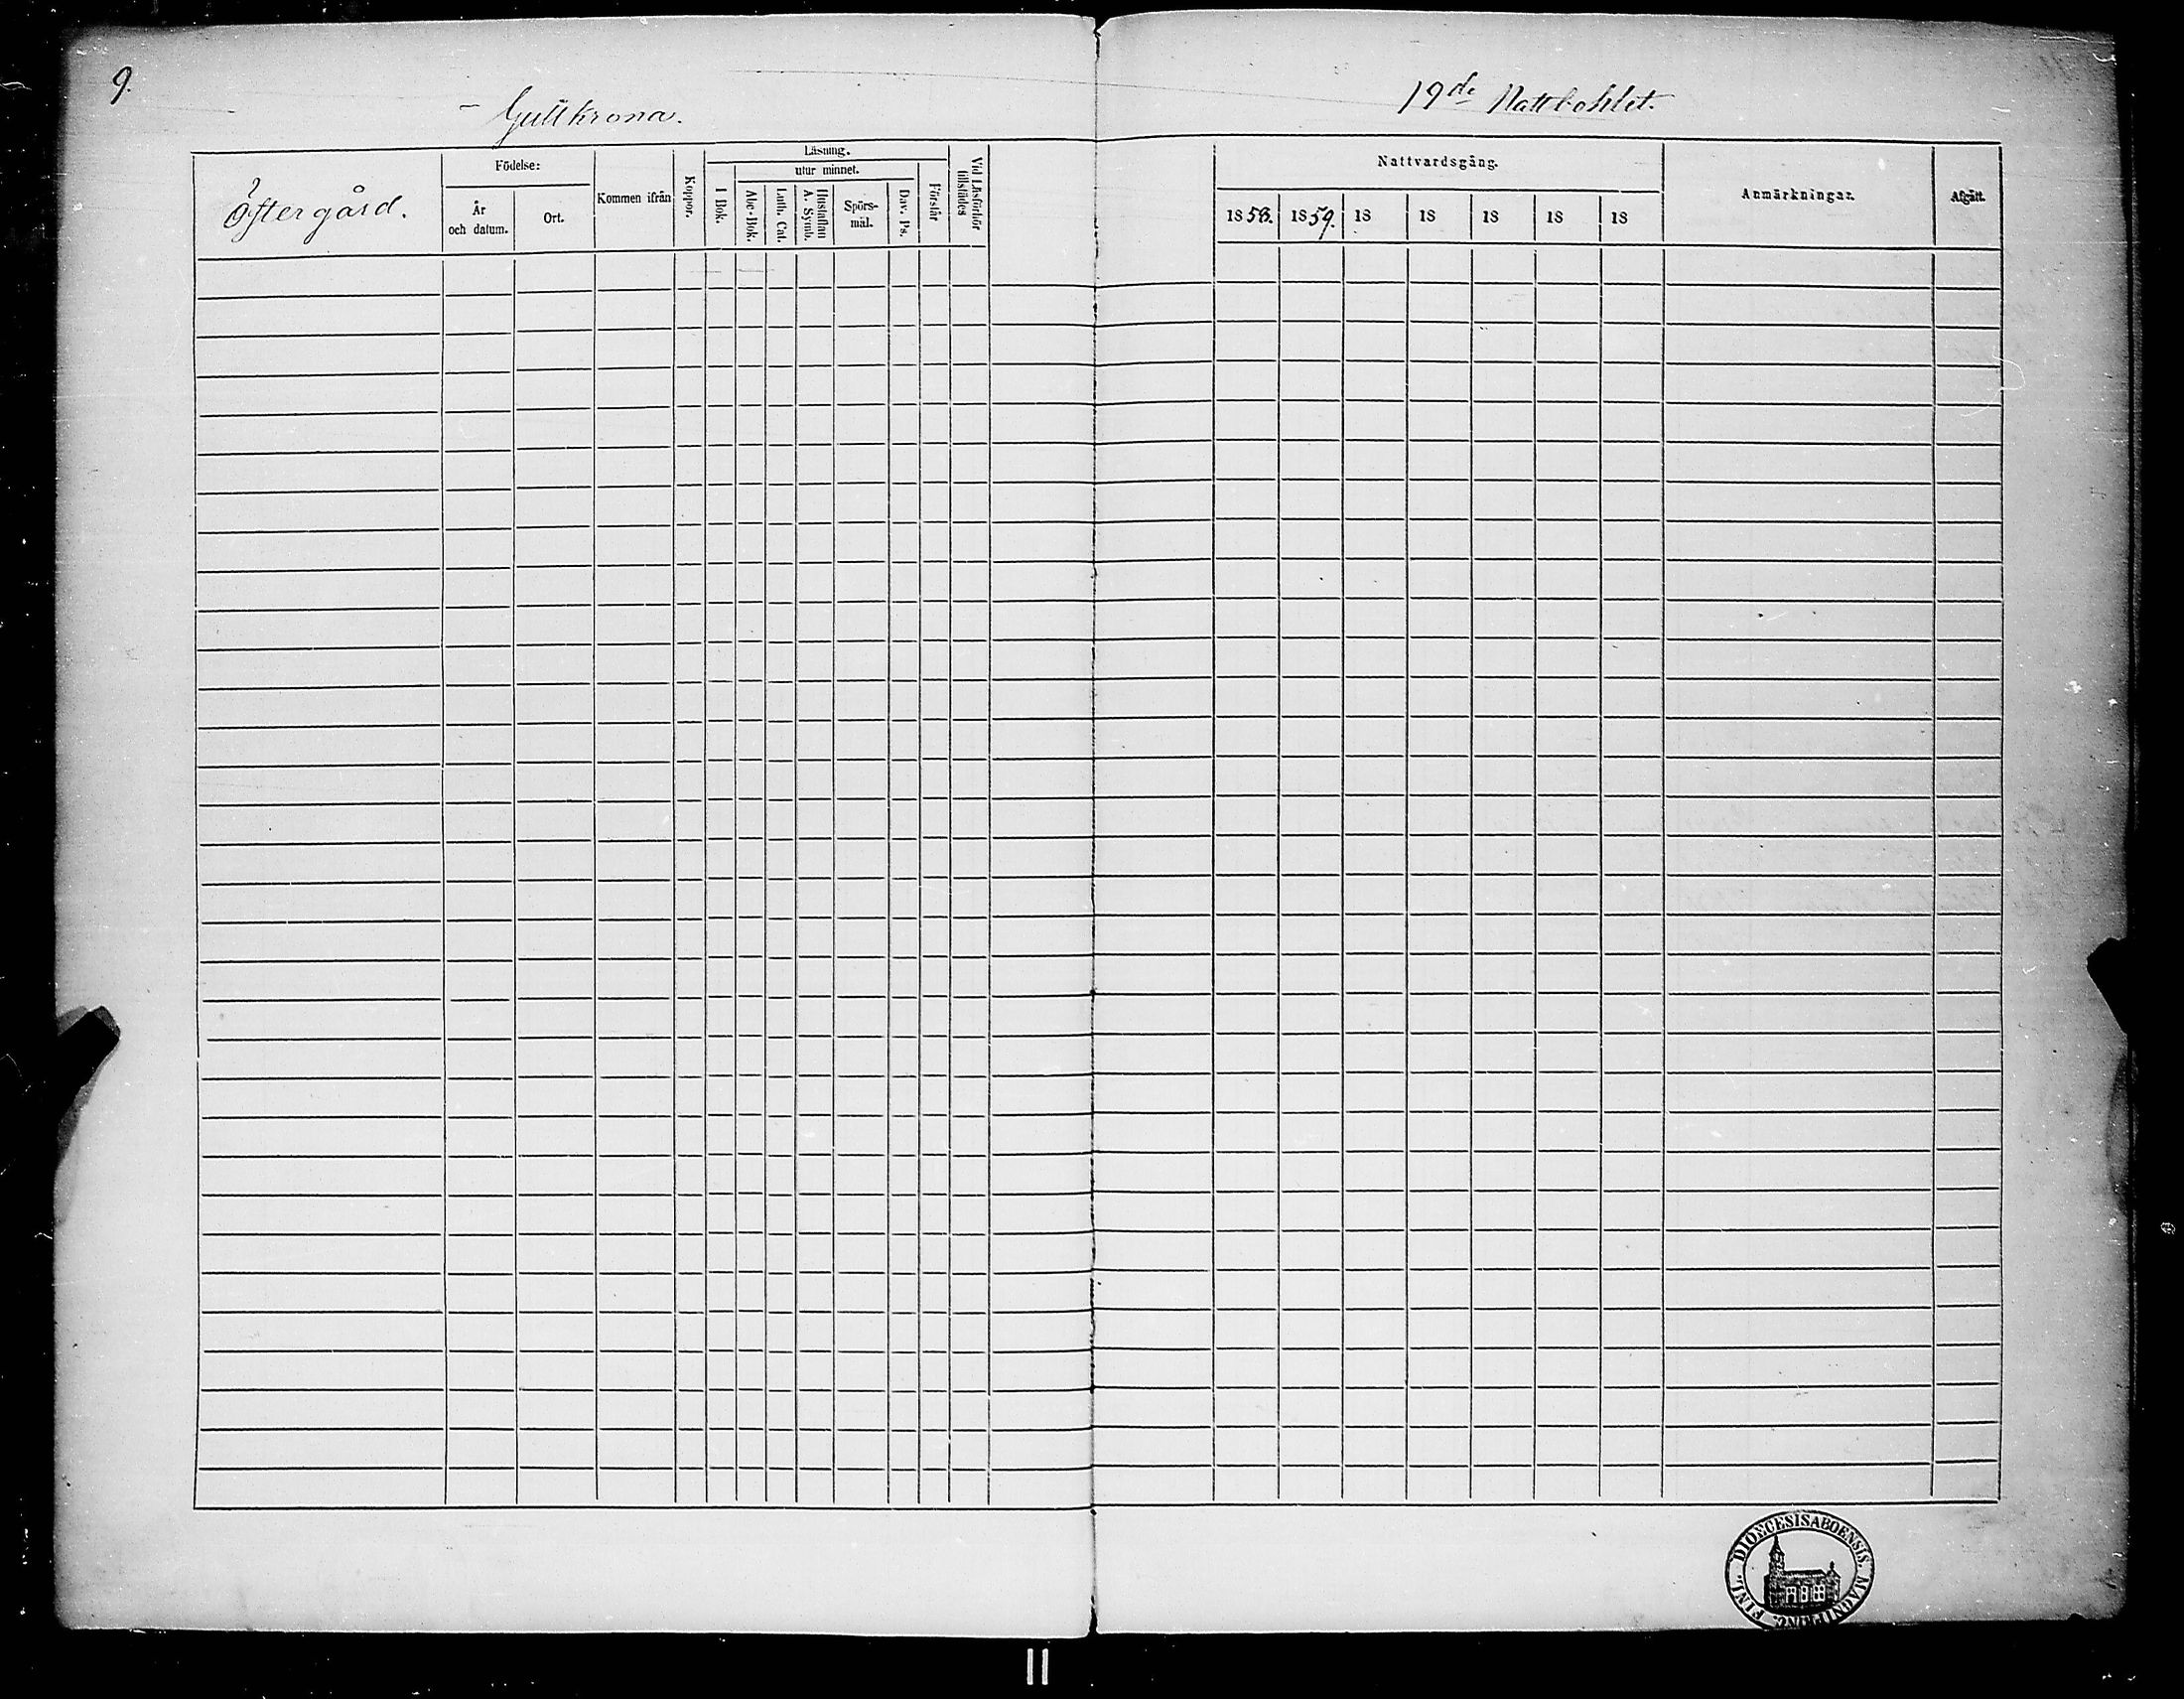 9.
Gullkrona.
19de Nattbohlet.
Östergård.
Födelse:
År
och datum.
Ort.
Kommen ifrån
Koppor.
Läsning.
utur minnet.
I Bok.
Abc-Bok.
Luth. Cat.
Hustaflan
A. Symb.
Spörs-
mål.
Dav. Ps.
Förstår
Vid Läsförhör
tillstädes
Nattvardsgång.
1858. 1859. 18 18 18 18 18
Anmärkningar.
Afgått.
DIOECESIS ABOENSIS. MAGNI PRINC. FINL.